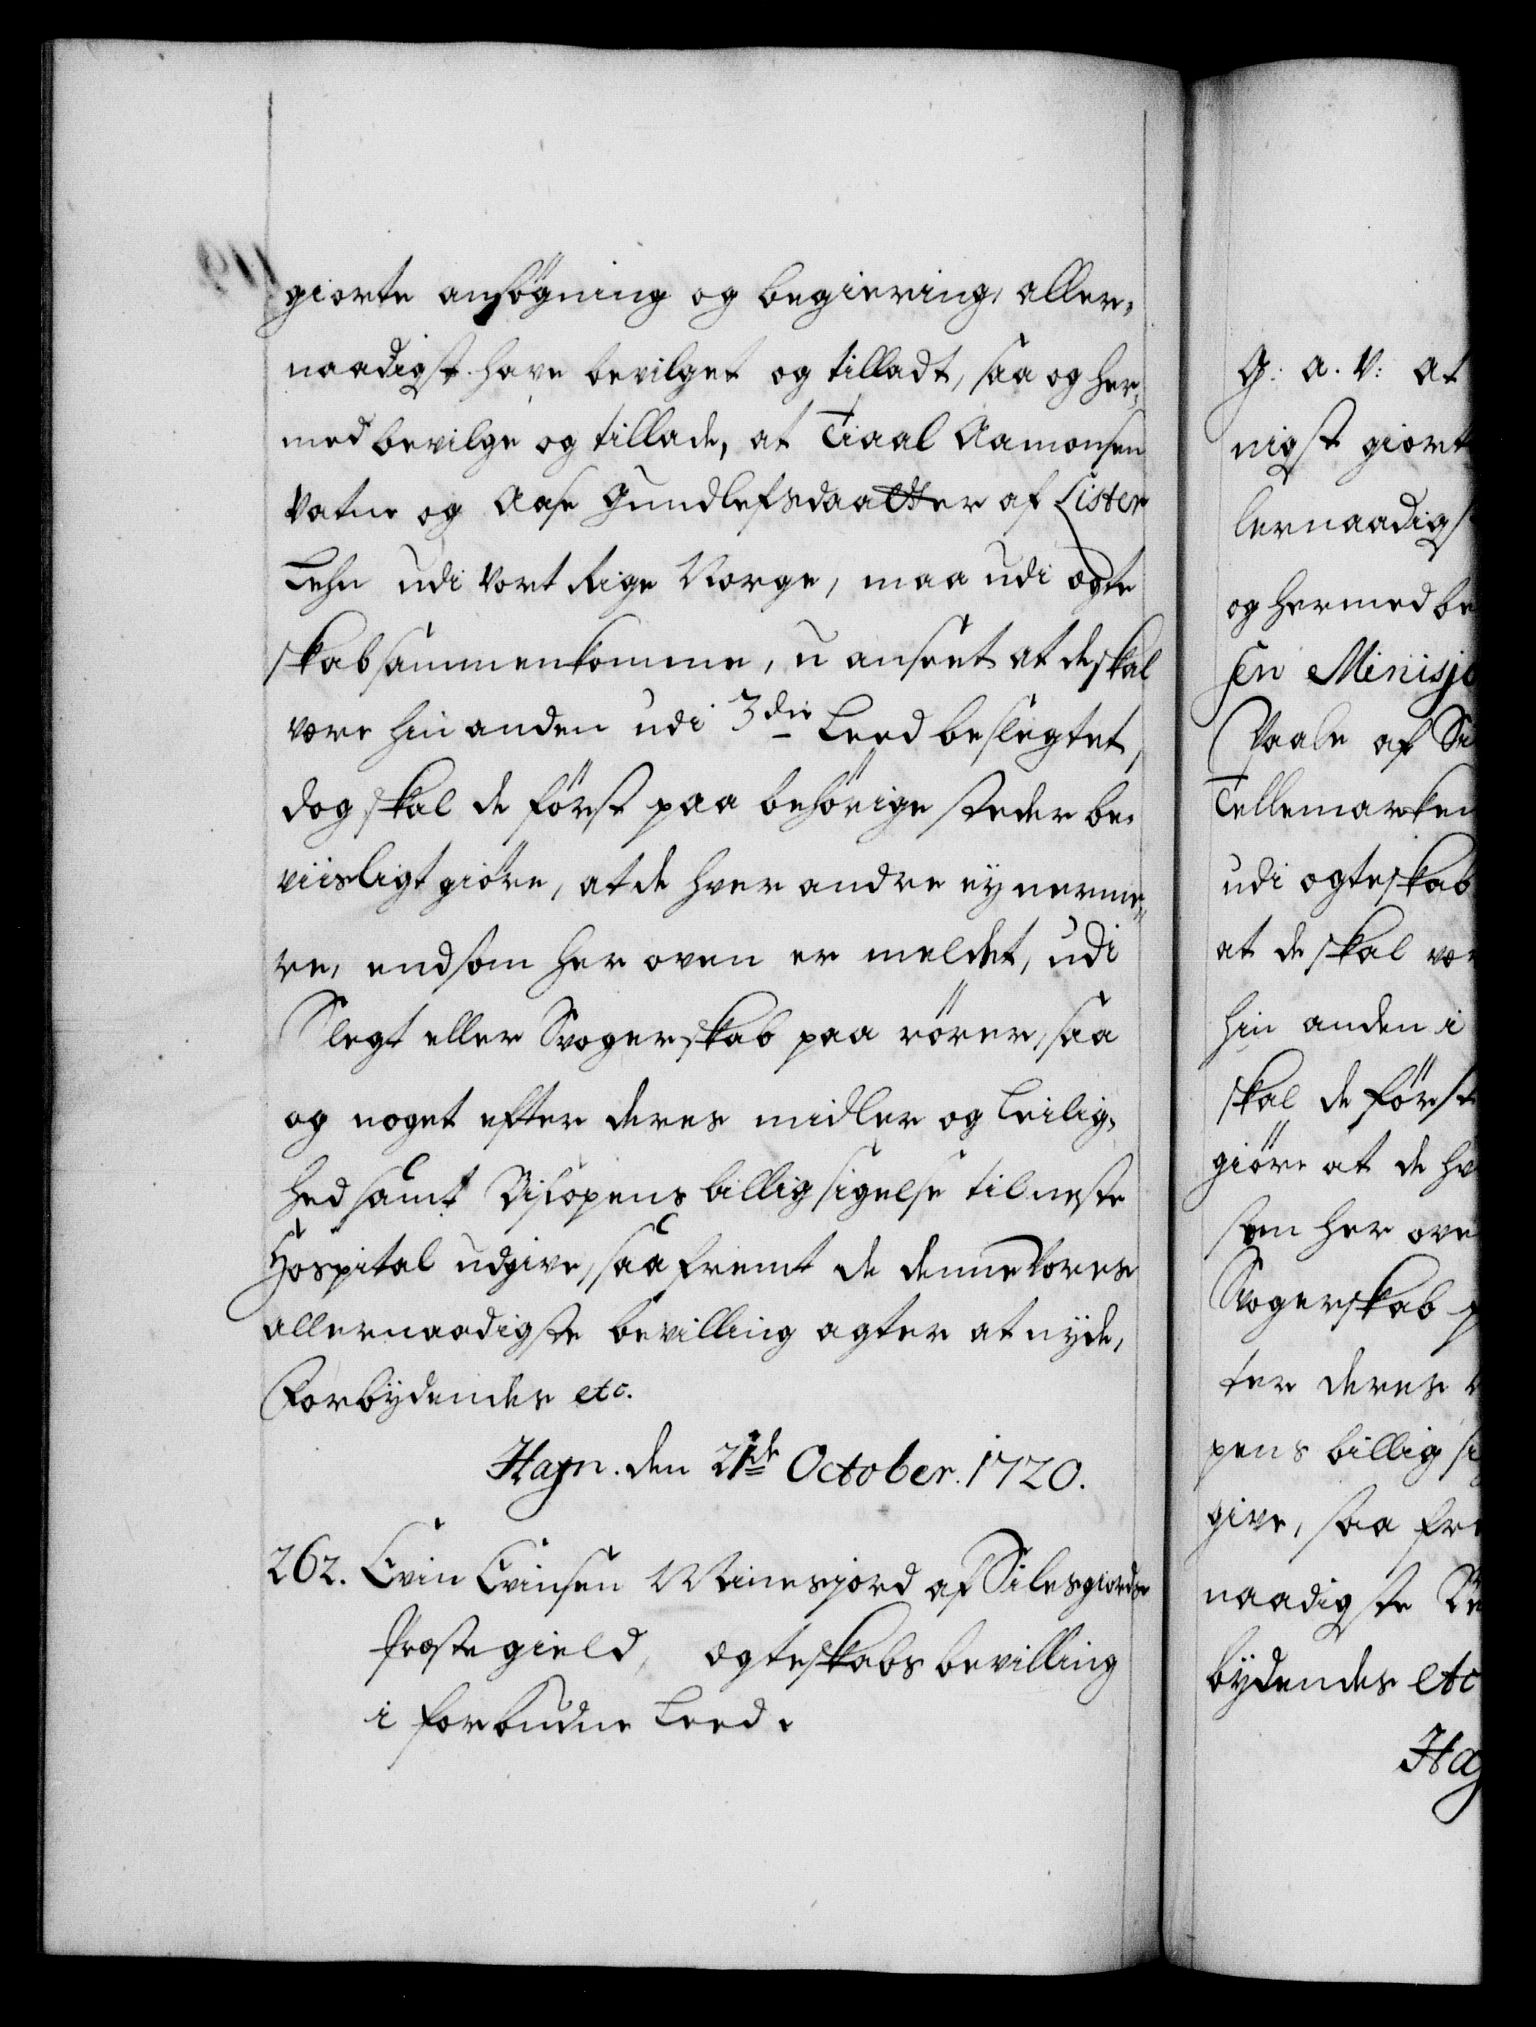 giorte ansögning og begiering, aller-
naadigst have bevilget og tilladt, saa og her-
med bevilge og tillade, at Tiaal Aamonsen
Vatne og Aase Gundlefsdaatter af Lister
Lehn udi Vort Rige Norge, maa udi ægte
skab sammenkomme, u anseet at de skal
være hin anden udi 3die Leed beslegtet,
dog skal de først paa behörige steder be-
viisligt giöre, at de hver andre ey nerme-
re, end som her oven er meldet, udi
Slegt eller Svogerskab paa rörer, saa
og noget efter deres midler og Leilig-
hed samt Biscopens billig sigelse til neste
Hospital udgive, saa fremt de denne Vores
allernaadigste bevilling agter at nyde,
Forbydendes etc.
Hafn. den 21de October. 1720.
262. Evin Evinsen Minesjord af Silesgiords
Præstegield, ægteskabs bevilling
i forbudne Leed.
G: a. V: at
nigst giort
lernaadigs
og hermed be
sen Minisjo
Paale af Si
Tellemarken
udi ægteskab
at de skal vær
hin anden i
skal de först
giöre at de hv
som her ove
Svogerskab p
ter deres
pens billig si
give, saa fre
naadigste Be
bydendes etc
Haf